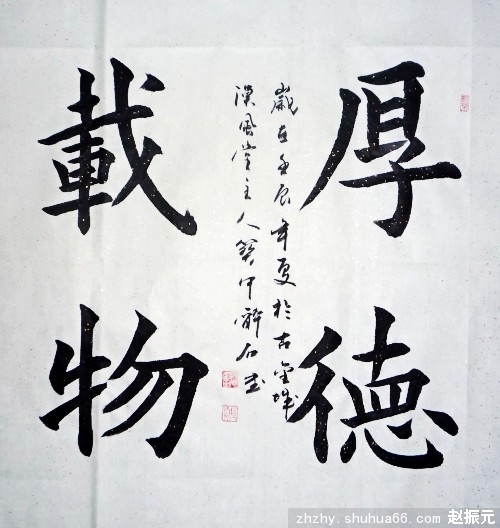 厚德
載物
歲在壬辰年夏於古金城
漢風堂主人
石
zhzhy.shuhua66.com 赵振元